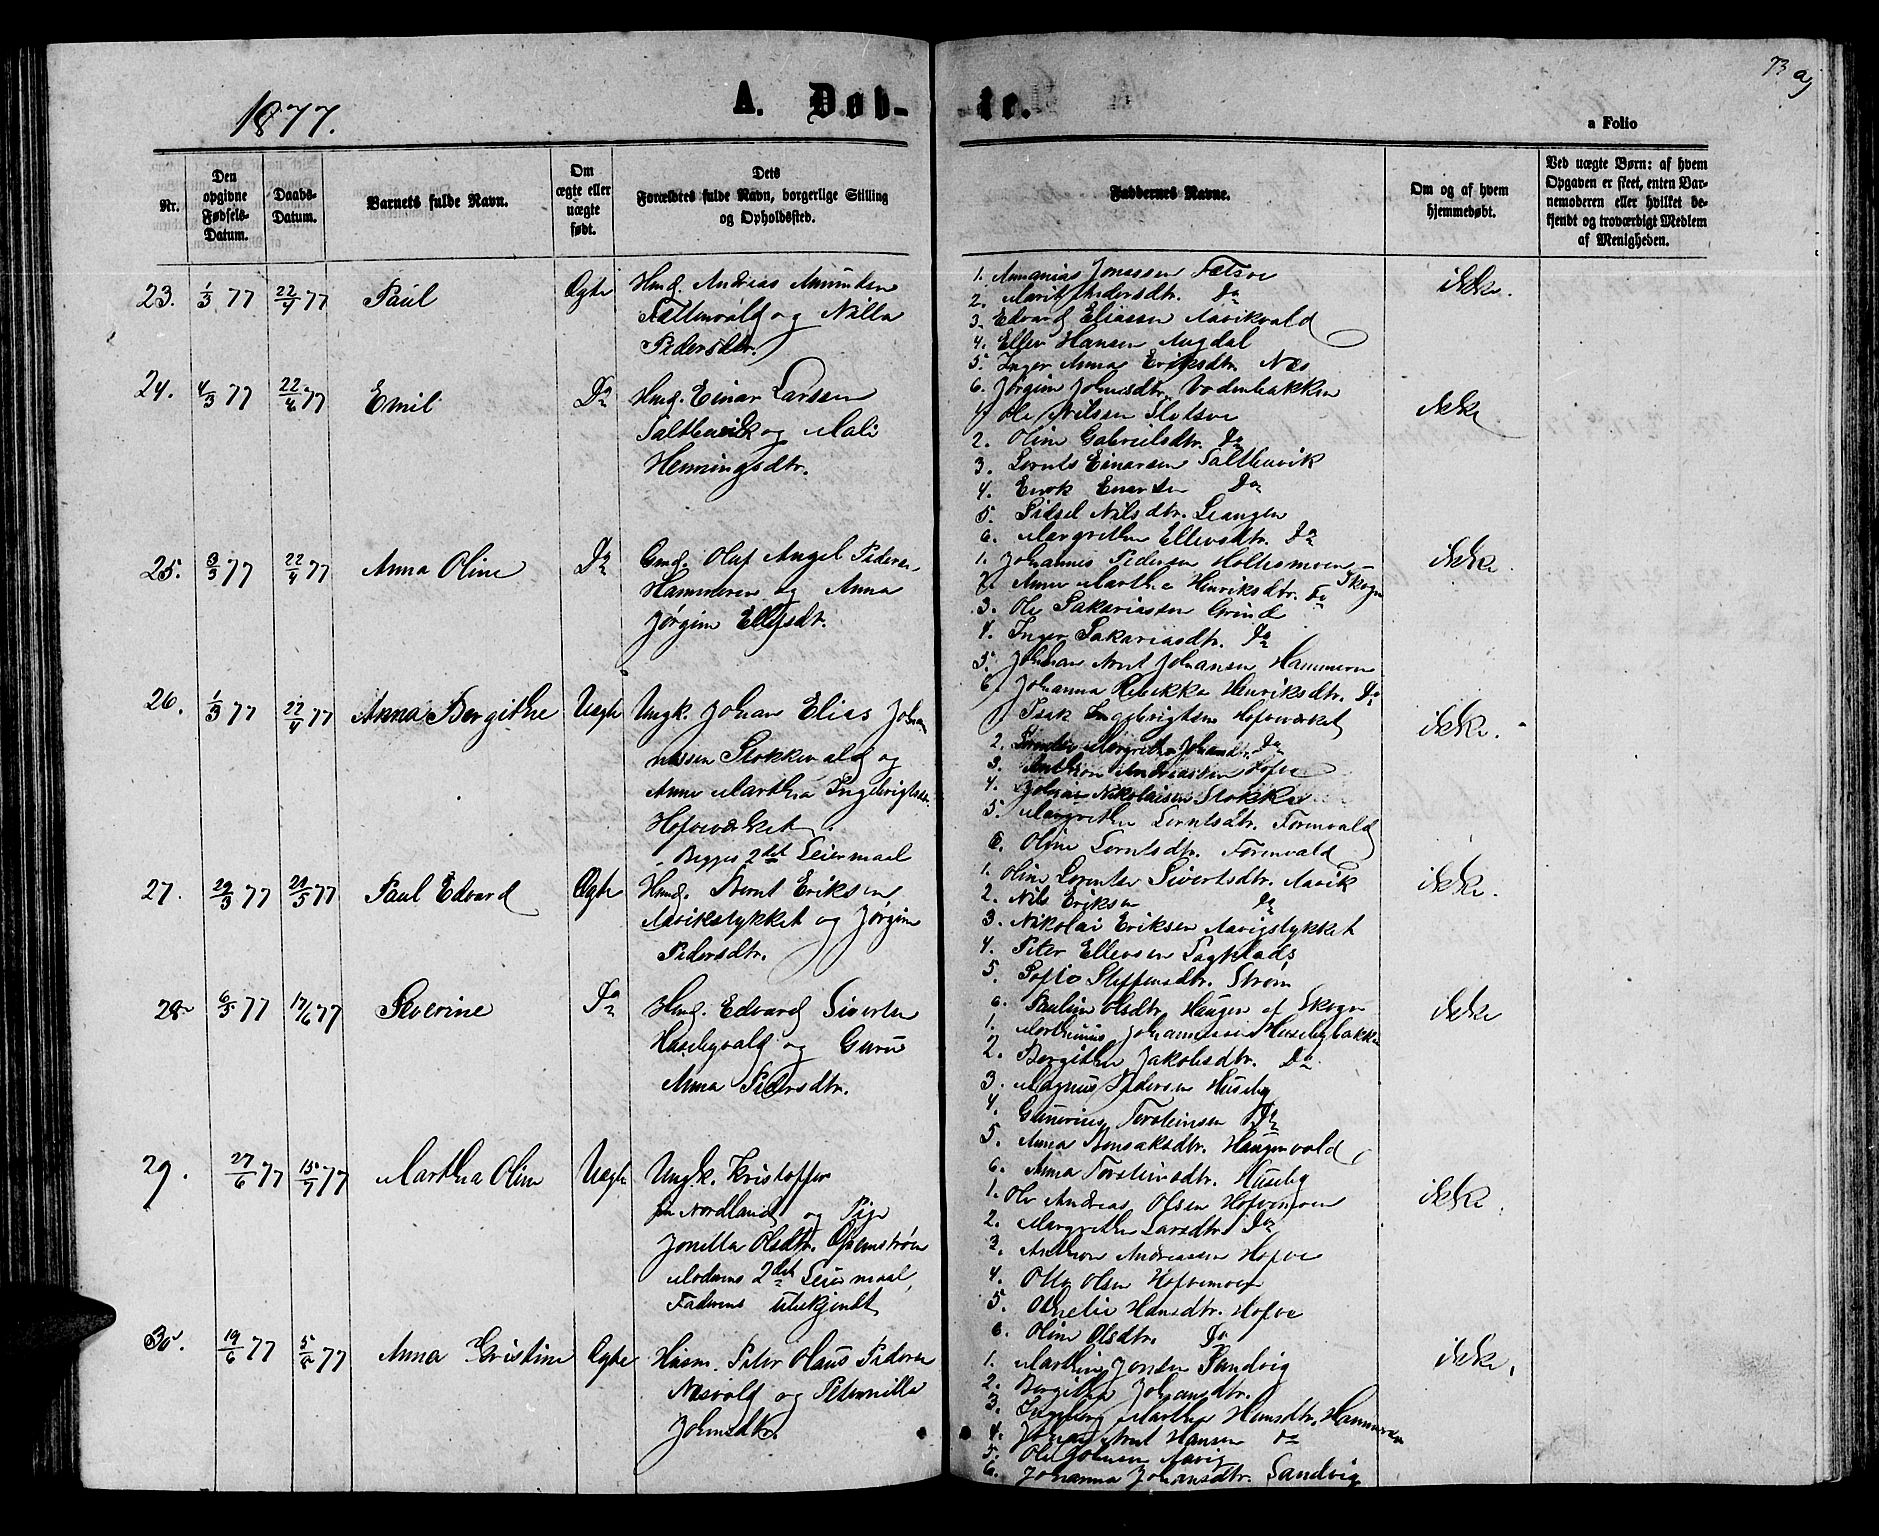 1877.
A. Døb-
te.
73 a)
a Folio
Nr.
Den
opgivne
Fødsels-
Datum.
Daabs-
Datum.
Barnets fulde Navn.
Om
ægte eller
uægte
født.
Dets
Forældres fulde Navn, borgerlige Stilling
og Opholdssted.
Faddernes Navne.
Om og af hvem
hjemmedøbt.
Ved uægte Børn: af hvem
Opgaven er skeet, enten Bar-
nemoderen eller hvilket be-
kjendt og troværdigt Medlem
af Menigheden.
23. 1/3 77 22/4 77 Paul Ægte
Hmd. Andreas Amundsen
Fættenvald og Nilla
Pedersdtr.
1. Annanias Jonassen
2. Marit Andersdtr. Do
3. Edvard Eliassen Aavikvald
4. Ellev Hansen Augdal
5. Inger Anna Eriksdtr. Næs
6. Jørgine Johnsdtr. Vodenbakken
ikke.
24. 4/3 77 22/4 77 Emil Do
Hmd. Einar Larssen
Salthuvik og Mali
Henningsdtr.
1. Ole Nilsen
2. Oline Gabrielsdtr. Do
3. Lornts Einarsen Salthuvik
4. Do
5. Sidsel Nilsdtr. Leangen
6. Margrethe Ellevsdtr. Do
ikke
25. 3/3 77 22/4 77 Anna Oline Do
Gmd. Olaf Angel Pedersen
Hammeren og Anna
Jørgine Ellefsdtr.
1. Johannes Pedersen Holtesmoen-
Skogn
2. Anne Marthe Henriksdtr. Do
3. Ole Sakariassen Grind
4. Inger Sakariasdtr. Do
5. Johan Arnt Johansen Hammeren
6. Johanna Rebekka Henriksdtr. Do
ikke.
26. 1/3 77 22/4 77 Anna Bergithe Uægte
Ungk. Johan Elias Johan
nessen Stokkevald og
Anne Martha Ingebrigtsdtr.
Hofveværket
Begges 2det Leiermaal
1. Isak Ingebrigtsen Hofveværket
2. Margrethe Johansdtr. Do
3. Anthon Andreassen Hofve
4. Johan Nikolaisen Stokke
5. Margrethe Lorntsdtr. Førnvald
6. Oline Lorntsdtr. Førnvald
ikke.
27. 29/3 77 20/5 77 Paul Edvard Ægte
Hmd. Bernt Eriksen
Aavikstykket og Jørgine
Pedersdtr.
1. Oline Lorentse Sivertsdtr. Aavik
2. Nils Eriksen Do
3. Nikolai Eriksen Aavigstykket
4. Peter Ellevsen Sagplads
5. Sofie Steffensdtr. Strøm
6. Pauline Olsdtr. Haugen af Skogn
ikke.
28 6/5 77 17/6 77 Severine Do
Hmd. Edvard Sivertsen
Husebyvald og Guru
Anna Pedersdtr.
1. Marthinus Johannessen Husebybakken
2. Bergithe Jakobsdtr. Do.
3. Magnus Pedersen Huseby
4. Gunerius Torsteinsen Do
5. Anna Bonsaksdtr. Haugenvald
6. Anna Torsteinsdtr. Huseby
ikke
29. 27/6 77 15/7 77 Martha Oline Uægte
Ungk. Kristoffer
fra Nordland og Pige
Jonilla Olsdtr.
Moderens 2det Leiermaal,
Faderens ubekjendt
1. Ole Andreas Olsen Hofvemoen
2. Margrethe Larsdtr. Do
3. Anthon Andreassen Hofve
4. Otto Olsen Hofvemoen
5. Hansdtr. Hofve
6. Oline Olsdtr. Do
ikke.
30. 19/6 77 77 Anna Kristine Ægte
Husm. Peter Olaus Pedersen
Næsvald og Peternille
Johnsdtr.
1. Marthin Jonsen Sandvig
2. Bergitha Johansdtr.
3. Ingeborg Martha Hansdtr. Hammeren
4. Johan Arnt Hansen do
5. Ole Johnsen Aavig
6. Johanna Johansdtr. Sandvig
ikke.